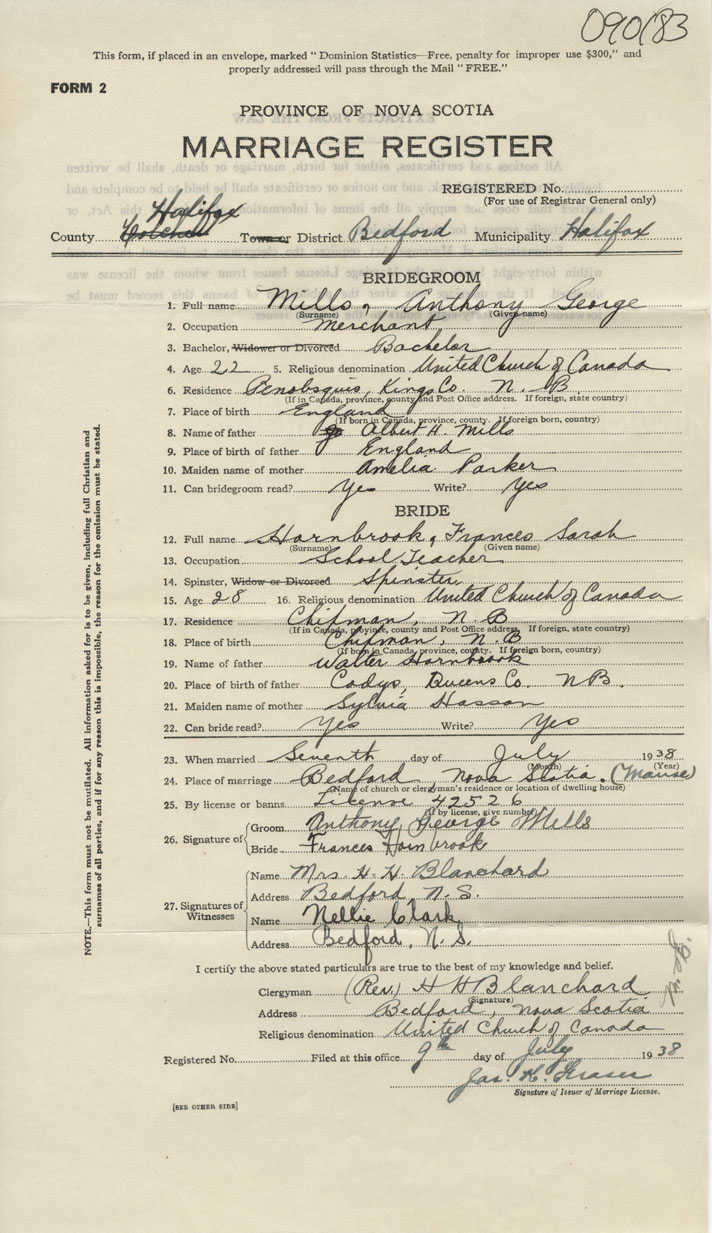 090183
This form, if placed in an envelope, marked "Dominion Statistics—Free, penalty for improper use $300," and
properly addressed will pass through the Mail "FREE."
FORM 2
PROVINCE OF NOVA SCOTIA
MARRIAGE REGISTER
REGISTERED No.
(For use of Registrar General only)
Halifax
County Colchester Town or District Bedford Municipality Halifax
BRIDEGROOM
1. Full name Mills, Anthony George
(Surname) (Given name)
2. Occupation Merchant
3. Bachelor, Widower or Divorced Bachelor
4. Age 22 5. Religious denomination United Church of Canada
6. Residence Penobsquis, Kings Co. N. B.
(If in Canada, province, county and Post Office address. If foreign, state country)
7. Place of birth England
(If born in Canada, province, county. If foreign born, country)
8. Name of father Albert H. Mills
9. Place of birth of father England
10. Maiden name of mother Amelia Parker
11. Can bridegroom read? Yes Write? Yes
BRIDE
12. Full name Hornbrook, Frances Sarah
(Surname) (Given name)
13. Occupation School Teacher
14. Spinster, Widow or Divorced Spinster
15. Age 28 16. Religious denomination United Church of Canada
17. Residence Chipman, N. B
(If in Canada, province, county and Post Office address. If foreign, state country)
18. Place of birth Chipman, N. B
(If born in Canada, province, county. If foreign born, country)
19. Name of father Walter Hornbrook
20. Place of birth of father Codys, Queens Co. N B.
21. Maiden name of mother Sylvia Hasson
22. Can bride read? Yes Write? Yes
23. When married Seventh day of July 1938
(Month) (Year)
24. Place of marriage Bedford, Nova Scotia. (Manse)
(Name of church or clergyman's residence or location of dwelling house)
25. By license or banns License 42526
(If by license, give number)
26. Signature of Groom Anthony George Mills
Bride Frances Hornbrook
27. Signatures of Witnesses
Name Mrs. H. H. Blanchard
Address Bedford, N. S.
Name Nellie Clark
Address Bedford, N. S.
I certify the above stated particulars are true to the best of my knowledge and belief.
Clergyman (Rev.) H H Blanchard
(Signature)
Address Bedford, Nova Scotia
Religious denomination United Church of Canada
Registered No. Filed at this office 9th day of July 1938
Jas. H. Fraser
Signature of Issuer of Marriage License.
[SEE OTHER SIDE]
NOTE.—This form must not be mutilated. All information asked for is to be given, including full Christian and
surnames of all parties, and if for any reason this is impossible, the reason for the omission must be stated.